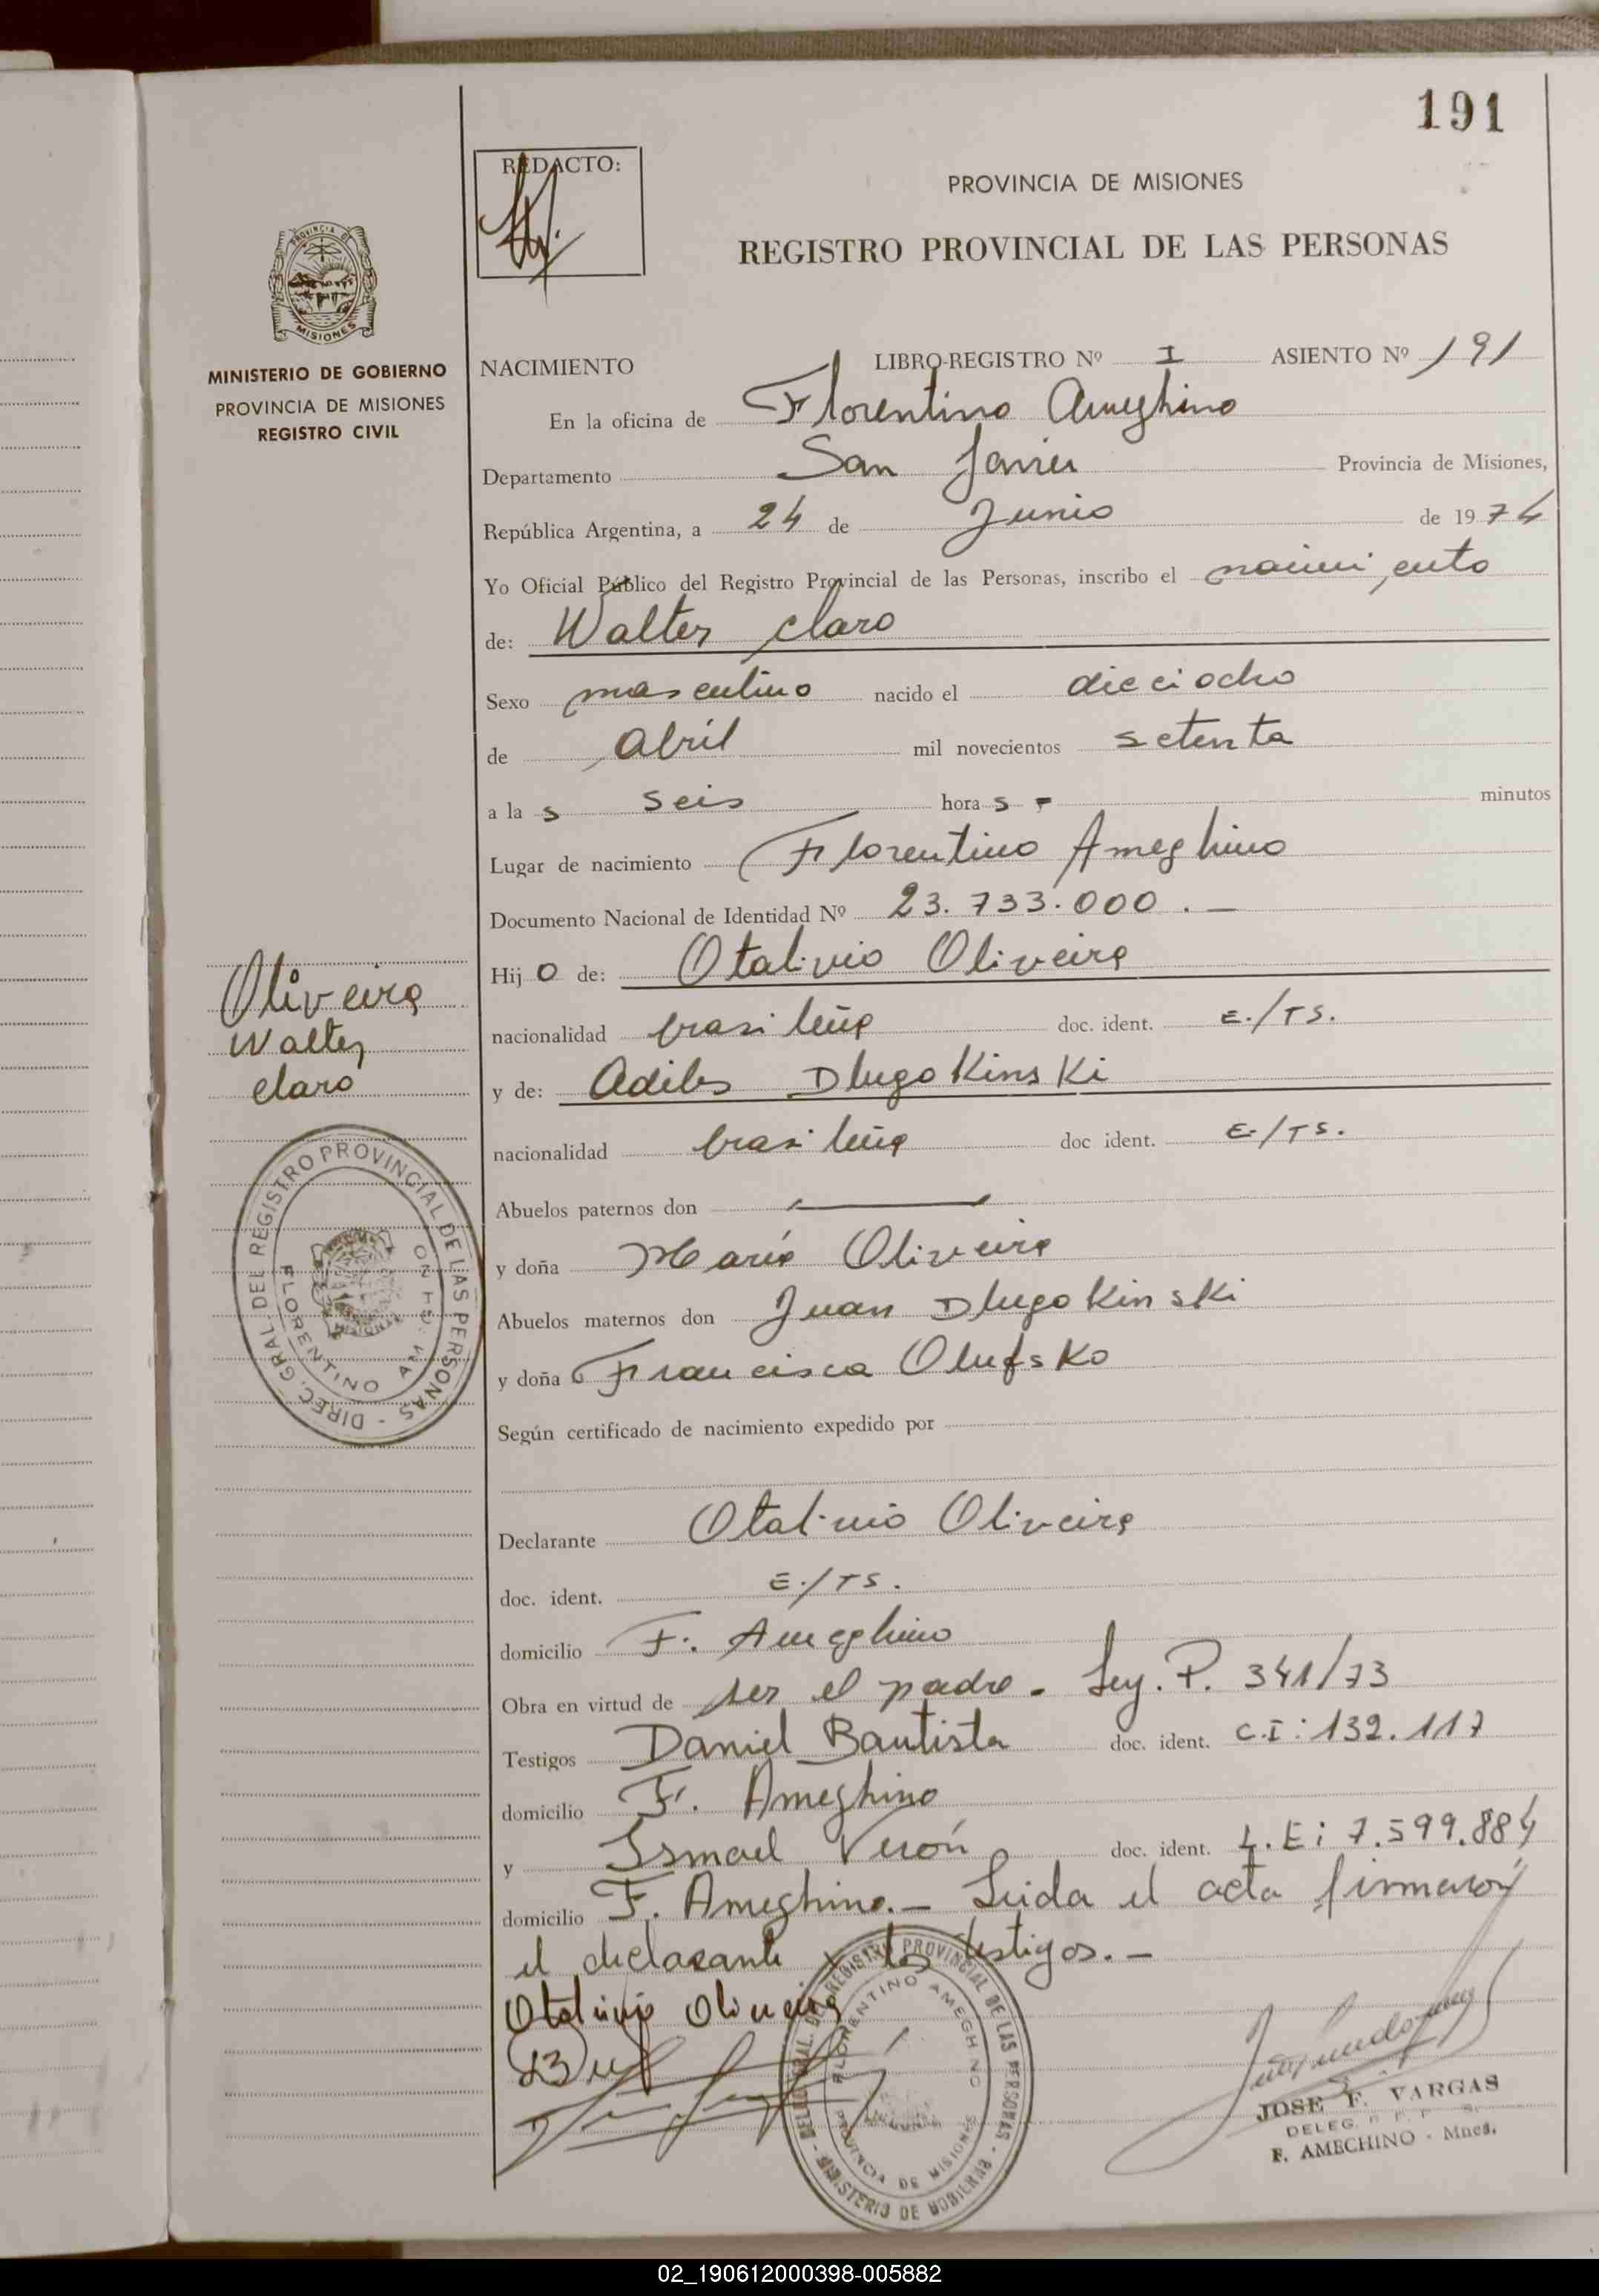 191
REDACTO:
PROVINCIA DE MISIONES
REGISTRO PROVINCIAL DE LAS PERSONAS
MISIONES
MINISTERIO DE GOBIERNO
PROVINCIA DE MISIONES
REGISTRO CIVIL
NACIMIENTO LIBRO-REGISTRO Nº I ASIENTO Nº 191
En la oficina de Florentino Ameghino
Departamento San Javier Provincia de Misiones,
República Argentina, a 24 de Junio de 1974
Yo Oficial Público del Registro Provincial de las Personas, inscribo el nacimiento
de: Walter claro
Sexo masculino nacido el dieciocho
de abril mil novecientos setenta
a las seis horas - minutos
Lugar de nacimiento Florentino Ameghino
Documento Nacional de Identidad Nº 23.733.000.-
Hijo de: Otalivio Oliveira
nacionalidad brasileña doc. ident. E./TS.
y de: Adiles Dlugokinski
nacionalidad brasileña doc ident. E./TS.
Abuelos paternos don
y doña María Oliveira
Abuelos maternos don Juan Dlugokinski
y doña Francisca Olufsko
Según certificado de nacimiento expedido por
Declarante Otalivio Oliveira
doc. ident. E./TS.
domicilio F. Ameghino
Obra en virtud de ser el padre. Ley. P. 341/73
Testigos Daniel Bautista doc. ident. C.I: 132.117
domicilio F. Ameghino
y Ismael Verón doc. ident. L.E: 7.599.884
domicilio F. Ameghino.- Leida el acta firmaron
el declarante y los testigos.-
Otalivio Oliveira
Oliveira
Walter
claro
DIREC. GRAL. DEL REGISTRO PROVINCIAL DE LAS PERSONAS
FLORENTINO AMEGHINO
REGISTRO PROVINCIAL DE LAS PERSONAS - MINISTERIO DE GOBIERNO
FLORENTINO AMEGHINO
PROVINCIA DE MISIONES
JOSE F. VARGAS
DELEG.
F. AMEGHINO - Mnes.
02_190612000398-005882